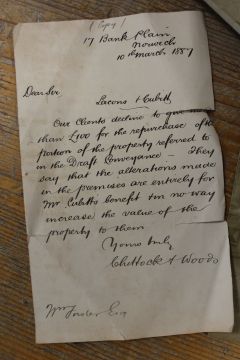 (Copy)
17 Bank Plain
Norwich
10th March 1887
Dear Sir
Lacons & Cubitt
Our Clients decline to give
than £100 for the repurchase of the
portion of the property referred to
in the Draft Conveyance – They
say that the alterations made
in the premises are entirely for
Mr Cubitts benefit & in no way
increase the value of the
property to them
Yours truly
Chittock & Woods
Wm Forder Esq